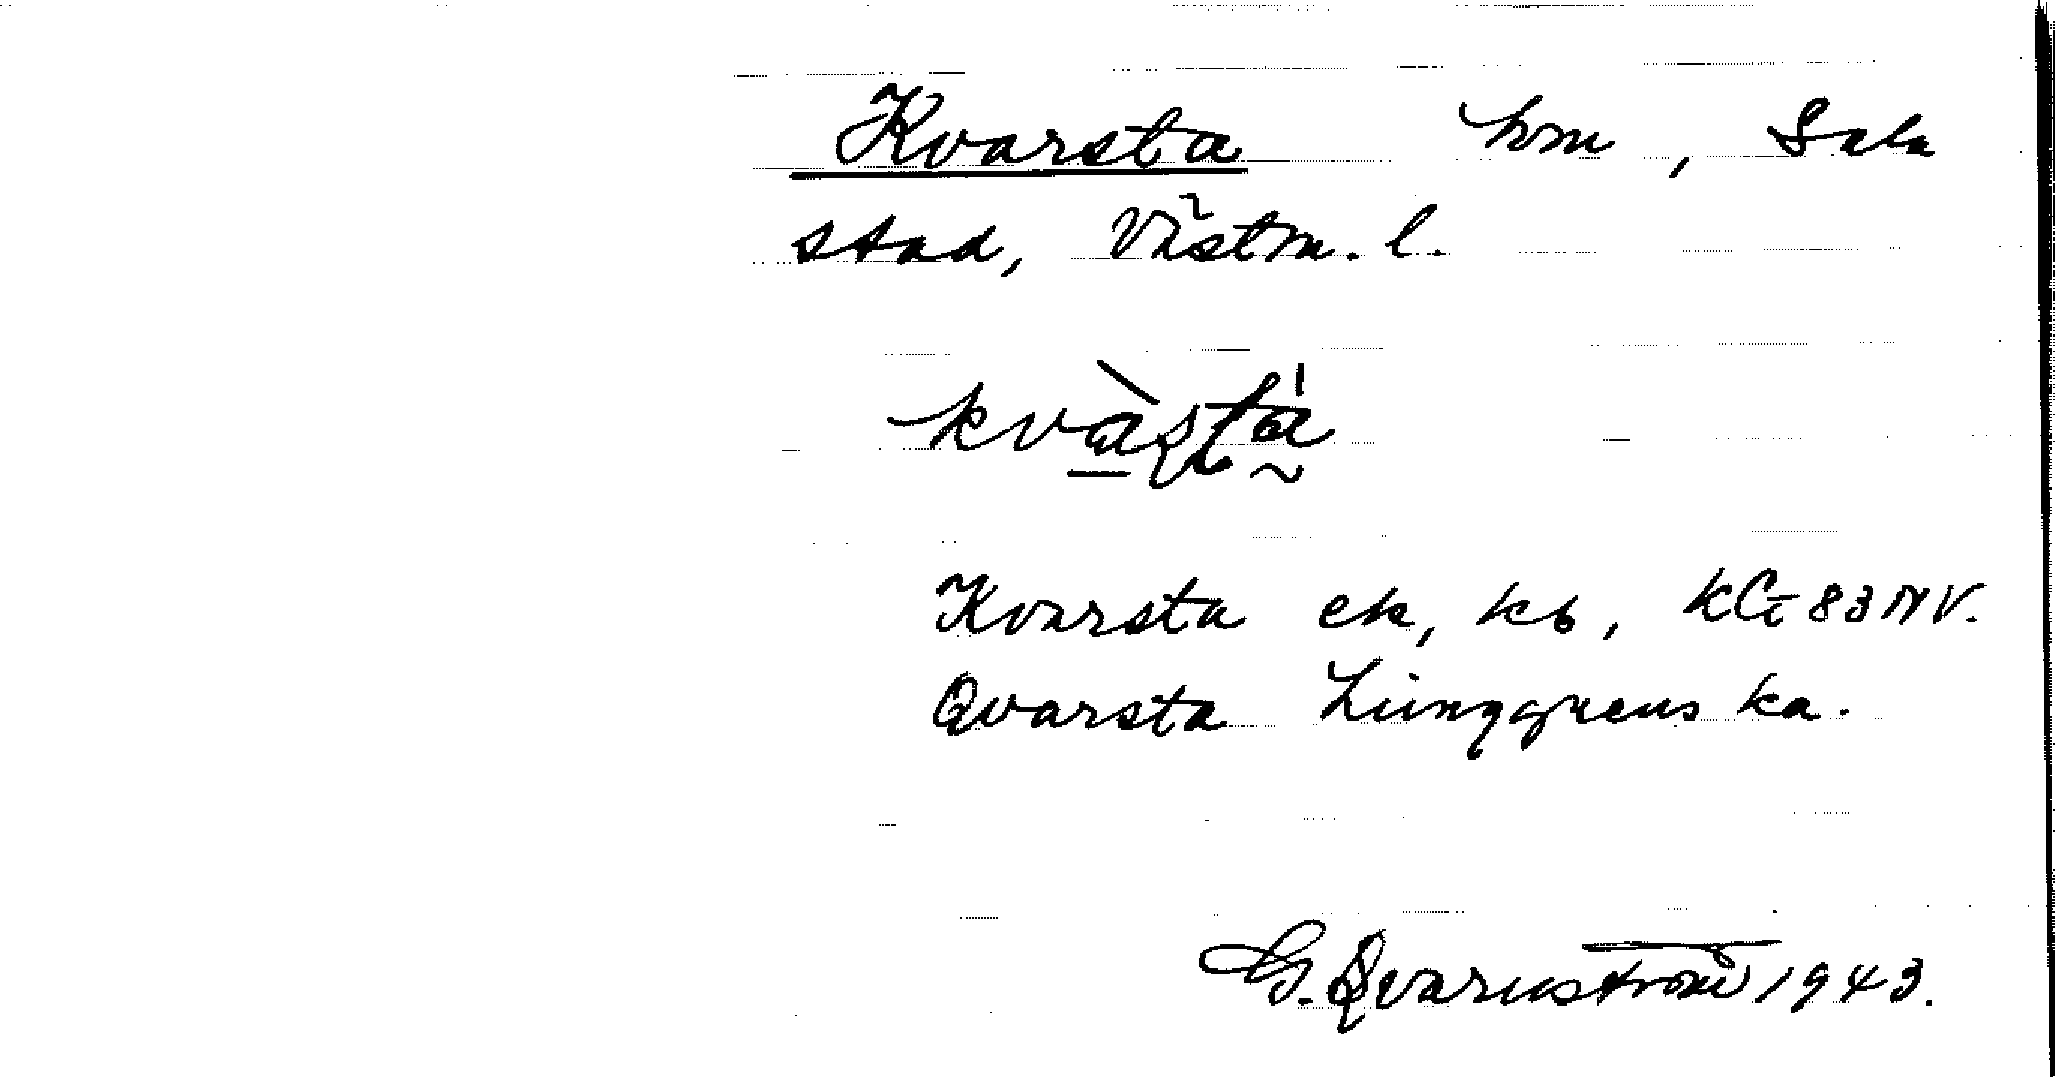 Kvarsta hm, Sala
stad, Västm. l.
kvàṣṭá
Kvarsta ek, kb, KG 83 NV.
Qvarsta Ljunggrens ka.
G. Qvarnström 1943.